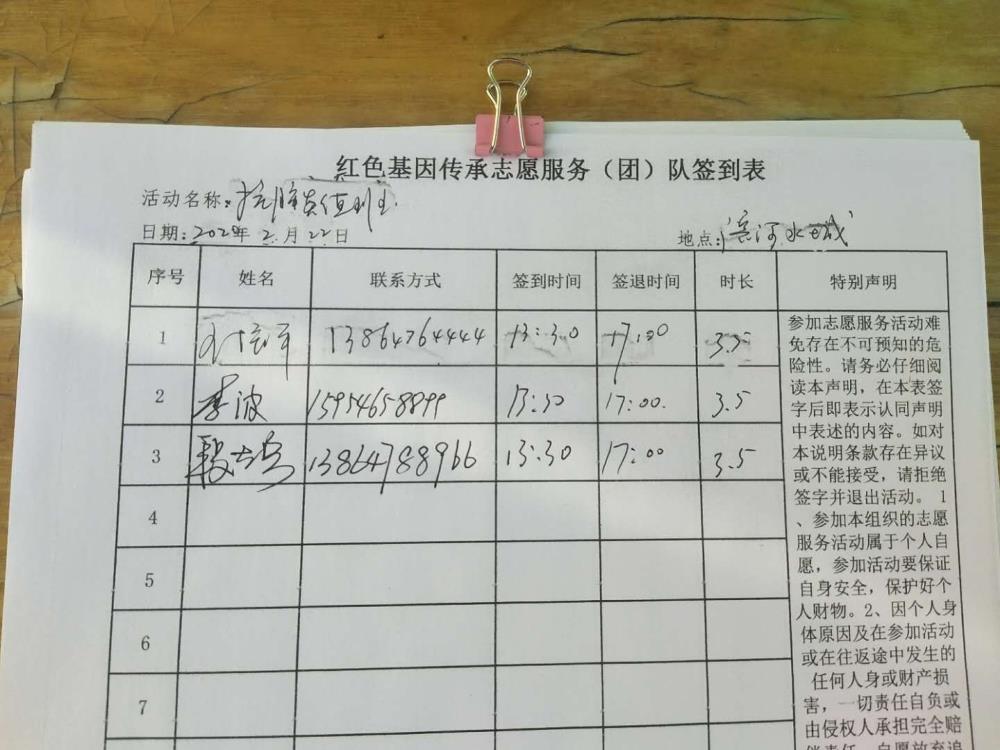 红色基因传承志愿服务（团）队签到表
活动名称：
日期：2020年2月22日
地点：滨河水城
序号 姓名 联系方式 签到时间 签退时间 时长 特别声明
1 13864764444 13:30 17:00 3.5
2 李波 15954658899 13:30 17:00. 3.5
3 13864788966 13:30 17:00 3.5
4
5
6
7
参加志愿服务活动难
免存在不可预知的危
险性。请务必仔细阅
读本声明，在本表签
字后即表示认同声明
中表述的内容。如对
本说明条款存在异议
或不能接受，请拒绝
签字并退出活动。 1
、参加本组织的志愿
服务活动属于个人自
愿，参加活动要保证
自身安全，保护好个
人财物。2、因个人身
体原因及在参加活动
或在往返途中发生的
任何人身或财产损
害，一切责任自负或
由侵权人承担完全赔
偿责任，自愿放弃追